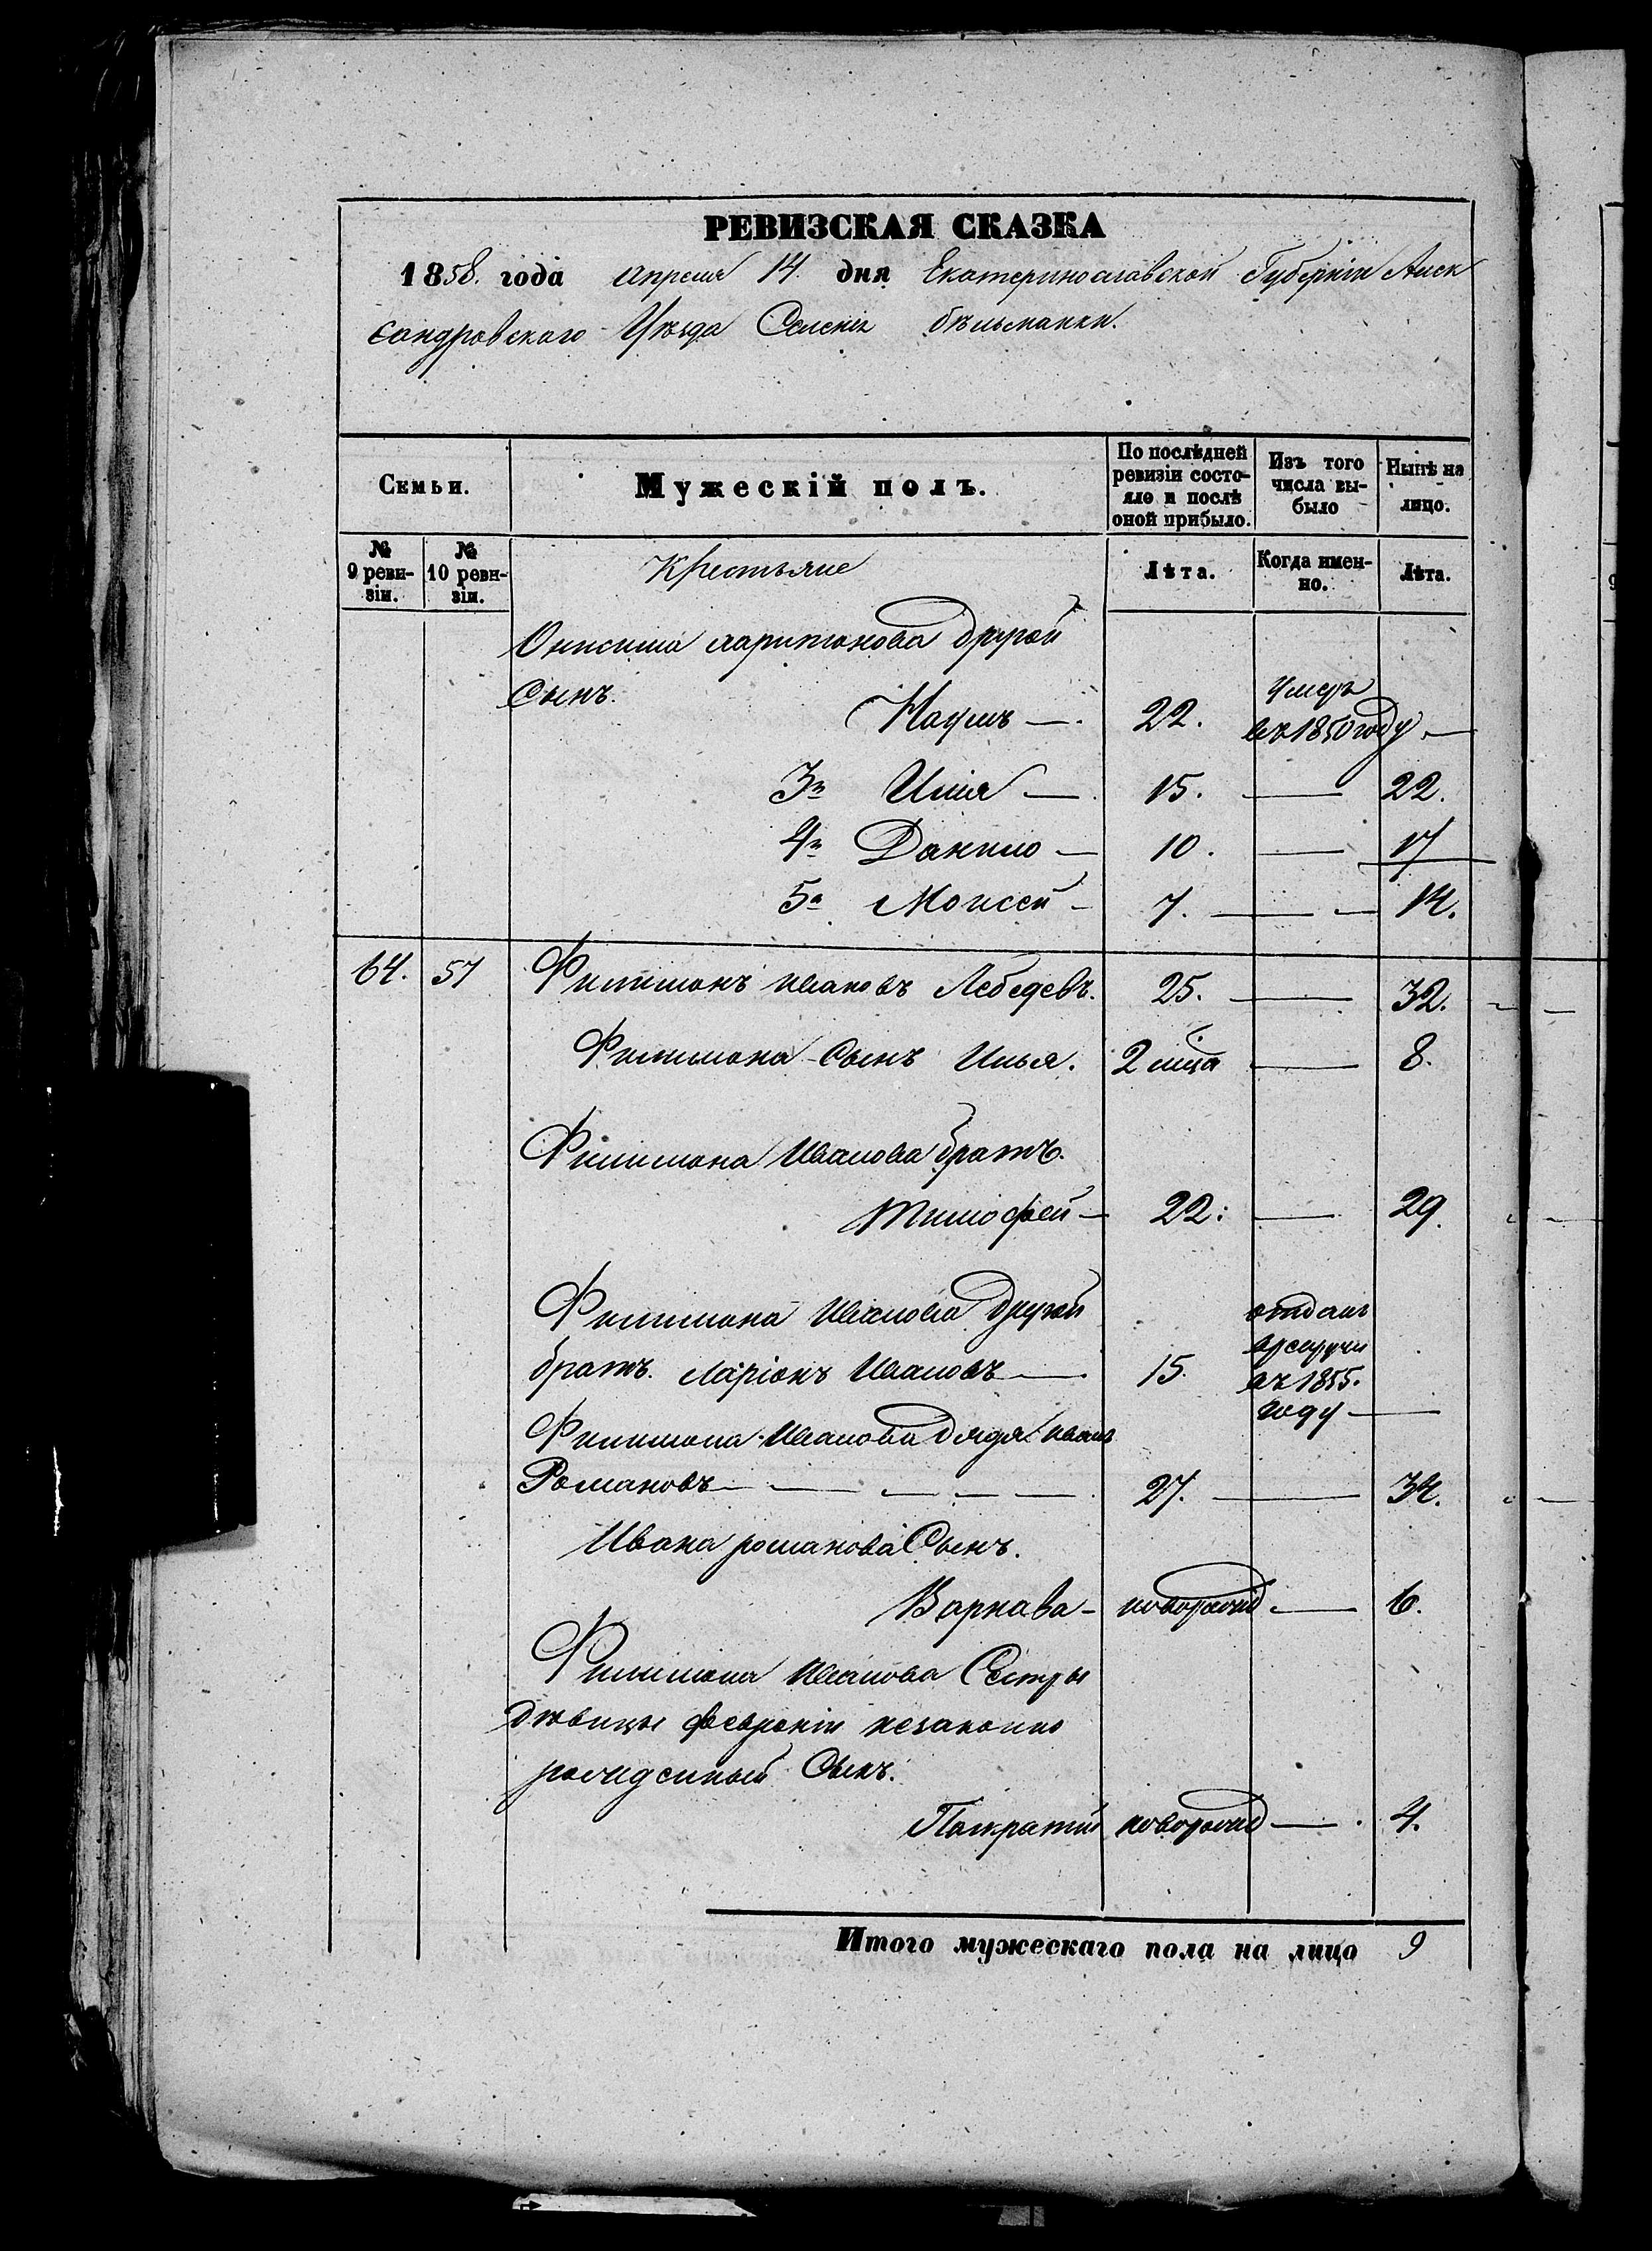 РЕВИЗСКАЯ СКАЗКА
1858. года апреля 14. дня Екатеринославской Губерніи Алек
сандровскаго Уѣзда Селенія бѣльманки.
Семьи.
Мужескій полъ.
По послѣдней ревизіи состояло и послѣ оной прибыло.
Изъ того числа выбыло
Нынѣ на лицо.
№ 9 ревизіи.
№ 10 ревизіи.
Крестьяне
Лѣта.
Когда именно.
Лѣта.
Онисима харитонова другой
Сынъ.
Наумъ — 22. умеръ въ 1850 году —
3й Илія — 15. — 22.
4й Данило — 10. — 17
5й Моисей — 7. — 14.
64. 57 Филимонъ ивановъ Лебедевъ. 25. — 32.
Филимона Сынъ Илья. 2 мѣца — 8.
Филимона Иванова братъ.
Тимофей — 22. — 29.
Филимона Иванова другой
братъ. Ларіонъ Ивановъ — 15. отданъ врекруты въ 1855. году —
Филимона Иванова дядя иванъ
Романовъ — 27. — 34.
Ивана романова Сынъ.
Варнава — новорожд — 6.
Филимона Иванова Сестры
дѣвицы февроніи незаконно
рожденный Сынъ.
Панкратій новорожд — 4.
Итого мужескаго пола на лицо 9